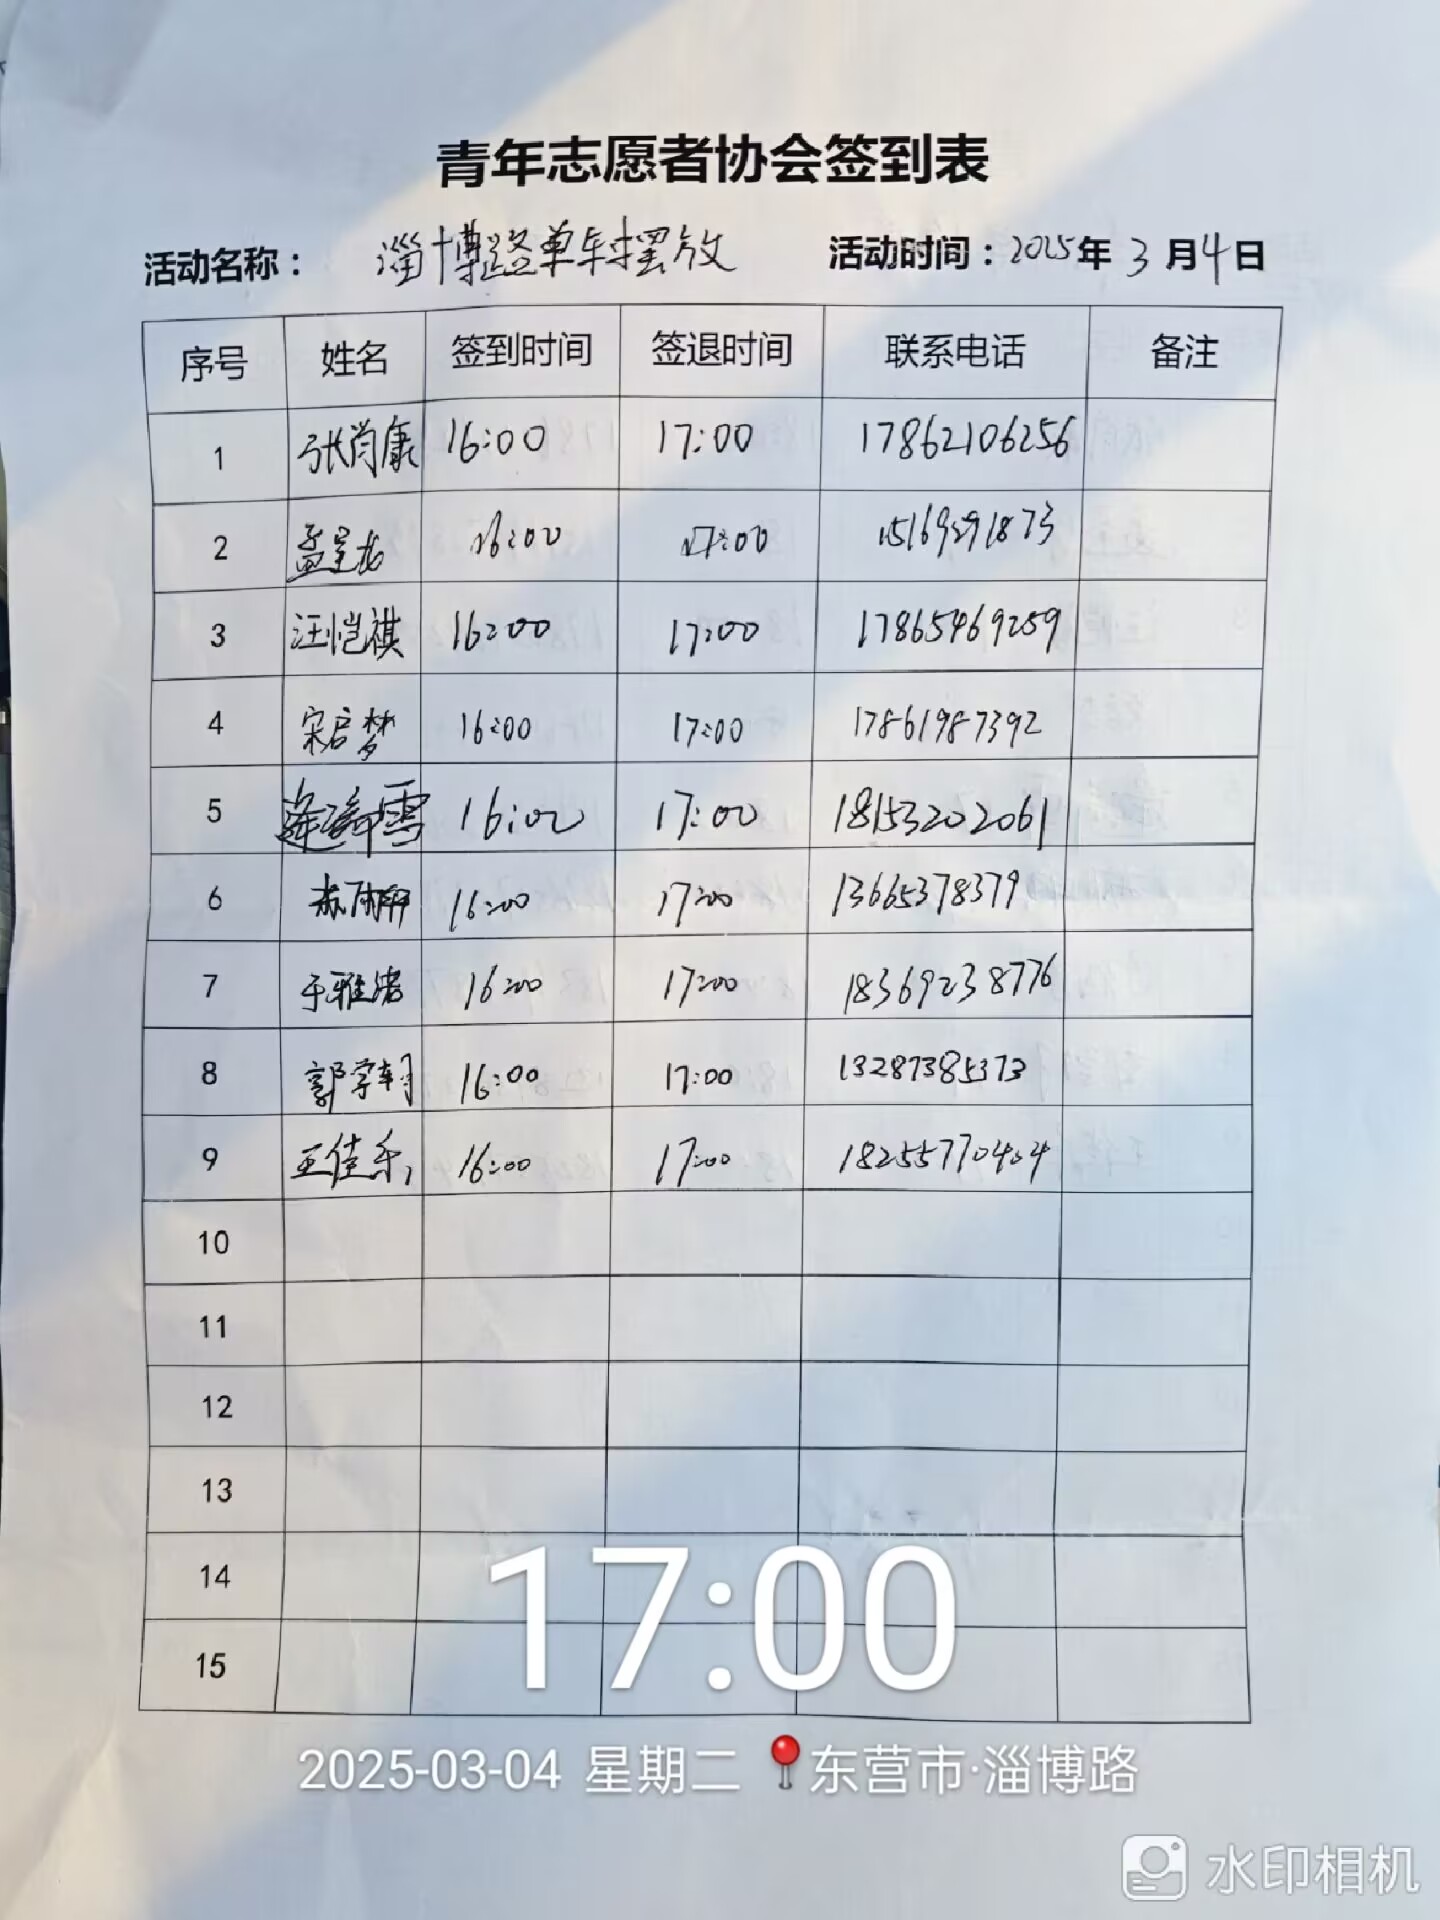 青年志愿者协会签到表
活动名称： 淄博路单车摆放 活动时间：2025年3月4日
序号 姓名 签到时间 签退时间 联系电话 备注
1 张肖康 16:00 17:00 17862106256
2 16:00 17:00 15169291873
3 汪恺祺 16:00 17:00 17865469259
4 宋启梦 16:00 17:00 17861987392
5 16:00 17:00 18153202061
6 16:00 17:00 13665378379
7 于雅洁 16:00 17:00 18369238776
8 16:00 17:00 13287385373
9 王佳乐 16:00 17:00 18255770404
10
11
12
13
14
15
17:00
2025-03-04 星期二 东营市·淄博路
水印相机